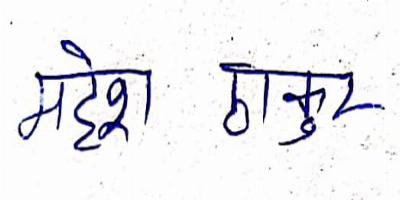 महेश ठाकुर